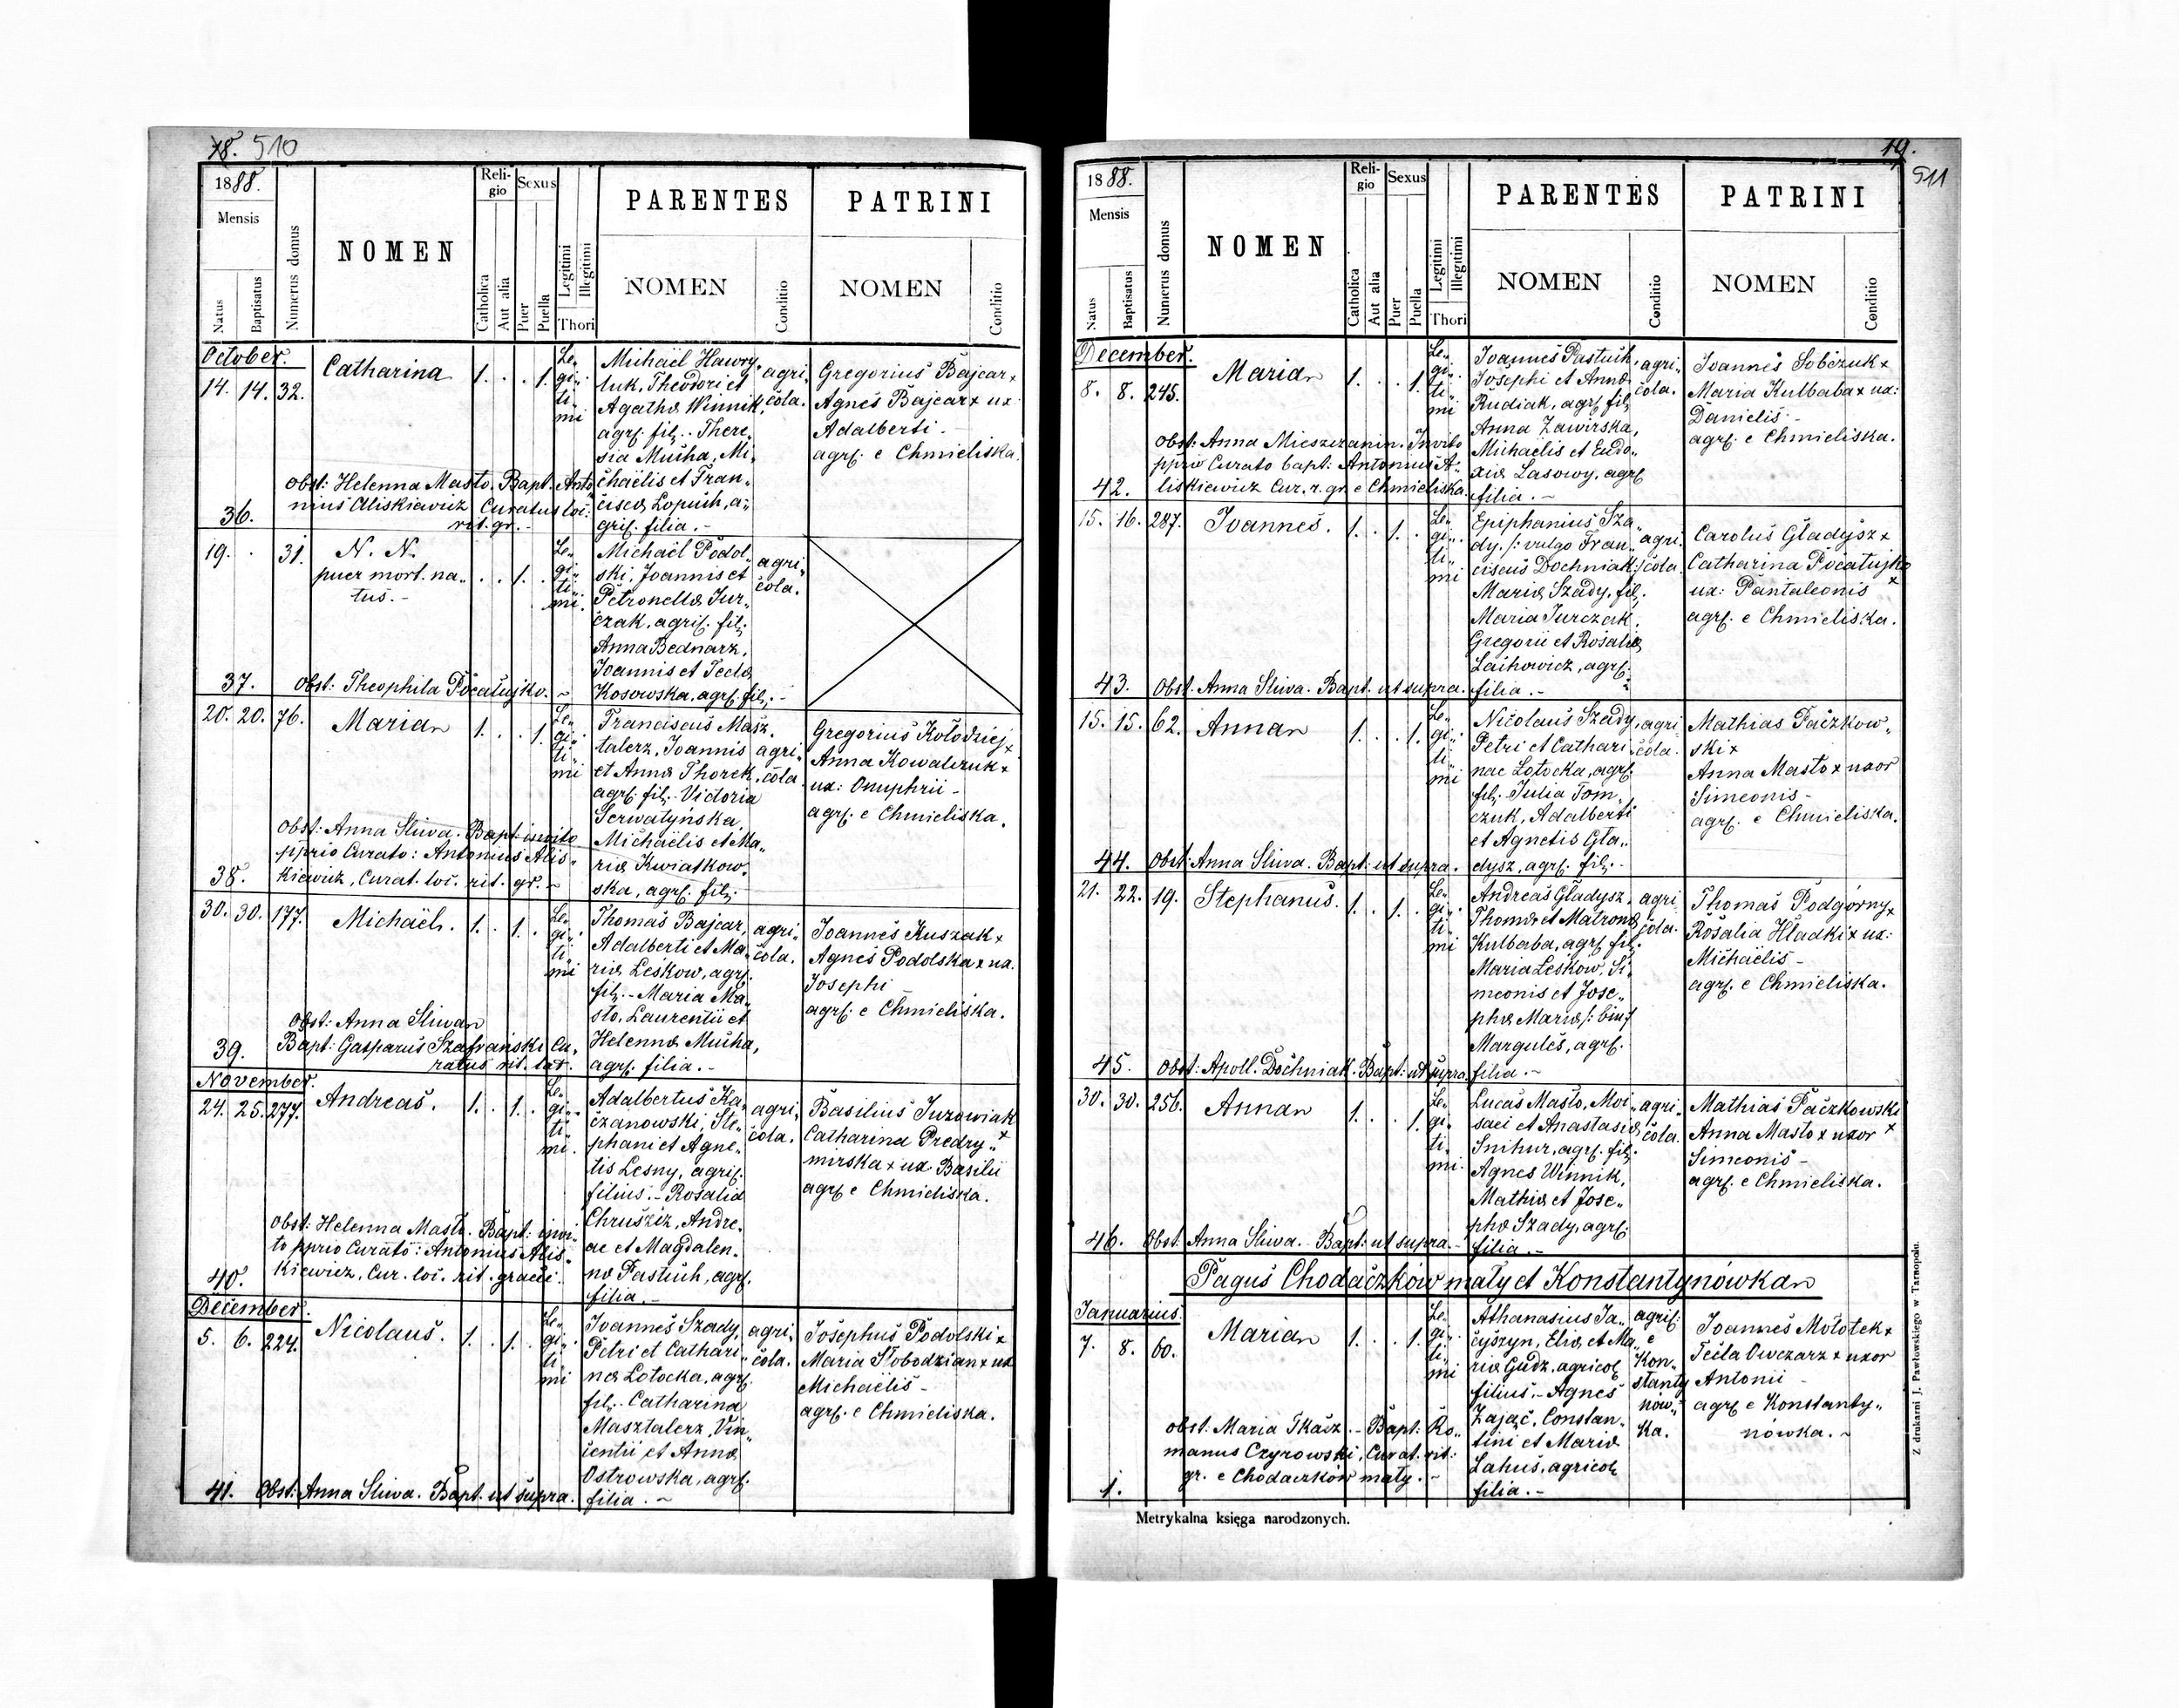 78. 510
1888.
Mensis
Natus
Baptisatus
Numerus domus
NOMEN
Religio
Catholica
Aut alia
Sexus
Puer
Puella
Legitimi
Illegitimi
Thori
PARENTES
NOMEN
Conditio
PATRINI
NOMEN
Conditio
October.
14. 14. 32.
Catharina
1. . . 1.
Le„
gi„
ti„
mi
Michaël Hawry„
luk, Theodori et
Agathæ Winnik,
agr. fil. - There„
sia Mucha, Mi„
chaëlis et Fran„
ciscæ Lopuch, a„
gric. filia. -
agri„
cola.
Gregorius Bajcar +
Agnes Bajcar + ux:
Adalberti -
agr. e Chmieliska.
Obst: Helenna Masto. Bapt. Anto„
nius Aliskiewicz Curatus loc.
rit. gr. -
36.
19. . 31.
N. N.
puer mort. na„
tus. -
. . 1. .
Le„
gi„
ti„
mi.
Michaël Podol„
ski, Joannis et
Petronellæ Jur„
czak, agric. fil.
Anna Bednarz,
Joannis et Teclæ
Kosowska, agr. fil. -
agri„
cola.
37. Obst: Theophila Pocatujko. ~
20. 20. 76.
Maria
1. . . 1.
Le„
gi„
ti„
mi
Franciscus Masz„
talerz, Joannis
et Annæ Thorek,
agr. fil. - Victoria
Serwatyńska,
Michaëlis et Ma„
riæ Kwiatkow„
ska, agr. fil. -
agri„
cola.
Gregorius Kołodziej +
Anna Kowalczuk +
ux: Onuphrii -
agr. e Chmieliska.
Obst: Anna Sliwa. Bapt: invito
pprio Curato: Antonius Alis„
kiewicz, Curat. loc. rit. gr. ~
38.
30. 30. 177.
Michaël.
1. . 1. .
Le„
gi„
ti„
mi
Thomas Bajcar,
Adalberti et Ma„
riæ Leskow, agr.
fil. - Maria Ma„
sto, Laurentii et
Helennæ Mucha,
agr. filia. -
agri„
cola.
Joannes Kuszak +
Agnes Podolska + ux.
Josephi
agr. e Chmieliska.
Obst: Anna Sliwa
Bapt: Gasparus Szafrański Cu„
ratus rit. lat.
39.
November.
24. 25. 277.
Andreas.
1. . 1. .
Le„
gi„
ti„
mi.
Adalbertus Ka„
czanowski, Ste„
phani et Agne„
tis Lesny, agric.
filius. - Rosalia
Chruściz, Andre„
ae et Magdalen„
næ Pastuch, agr.
filia. -
agri„
cola.
Basilius Juzowiak
Catharina Predry„ +
mirska + ux. Basilii
agr. e Chmieliska.
Obst: Helenna Masto. Bapt: invi„
to pprio Curato: Antonius Alis„
kiewicz, Cur. loc. rit. graeci.
40.
December.
5. 6. 224.
Nicolaus.
1. . 1. .
Le„
gi„
ti„
mi
Joannes Szady,
Petri et Cathari„
næ Lotocka, agr.
fil. - Catharina
Masztalerz, Vin„
centii et Annæ
Ostrowska, agr.
filia. ~
agri„
cola.
Josephus Podolski +
Maria Słobodzian + ux
Michaëlis -
agr. e Chmieliska.
41. Obst: Anna Sliwa. Bapt. ut supra.
19.
511
1888.
Mensis
Natus
Baptisatus
Numerus domus
NOMEN
Religio
Catholica
Aut alia
Sexus
Puer
Puella
Legitimi
Illegitimi
Thori
PARENTES
NOMEN
Conditio
PATRINI
NOMEN
Conditio
December.
8. 8. 245.
Maria
1. . . 1.
Le„
gi„
ti„
mi
Joannes Pastuch,
Josephi et Annæ
Rudiak, agr. fil.
Anna Zawirska,
Michaëlis et Eudo„
xiæ Lasowy, agr.
filia. -
agri„
cola.
Joannes Sobczuk +
Maria Kulbaba + ux:
Danielis -
agr. e Chmieliska.
Obst: Anna Mieszczanin. Invito
pprio Curato bapt: Antonius A„
liskiewicz Cur. r. gr. e Chmieliska.
42.
15. 16. 287.
Joannes.
1. . 1. .
Le„
gi„
ti„
mi
Epiphanius Sza„
dy, /: vulgo Fran„
ciscus Dochniak :/
Mariæ Szady, fil.
Maria Jurczak,
Gregorii et Rosaliæ
Laihowicz, agr.
filia. -
agri„
cola
Carolus Gładysz +
Catharina Pocatujko
ux: Pantaleonis +
agr. e Chmieliska.
43. Obst: Anna Sliwa. Bapt. ut supra.
15. 15. 62.
Anna
1. . . 1.
Le„
gi„
ti„
mi
Nicolaus Szady,
Petri et Cathari„
nae Lotocka, agr.
fil. Julia Tom„
czuk, Adalberti
et Agnetis Gła„
dysz, agr. fil. -
agri„
cola.
Mathias Paczkow„
ski +
Anna Masto + uxor
Simeonis -
agr. e Chmieliska.
44. Obst: Anna Sliwa. Bapt: ut supra.
21. 22. 19.
Stephanus.
1. . 1. .
Le„
gi„
ti„
mi
Andreas Gładysz,
Thomæ et Matronæ
Kulbaba, agr. fil.
Maria Leskow, Si„
meonis et Jose„
phæ Mariæ /: bin :/
Margules, agr.
filia. -
agri„
cola.
Thomas Podgórny +
Rosalia Hładki + ux:
Michaëlis -
agr. e Chmieliska.
45. Obst: Apoll. Dochniak. Bapt: ut supra.
30. 30. 256.
Anna
1. . . 1.
Le„
gi„
ti„
mi.
Lucas Masto, Moi„
saei et Anastasiæ
Snihur, agr. fil.
Agnes Winnik,
Mathiæ et Jose„
phæ Szady, agr.
filia. -
agri„
cola.
Mathias Paczkowski
Anna Masto + uxor +
Simeonis -
agr. e Chmieliska.
46. Obst: Anna Sliwa. - Bapt: ut supra. -
Pagus Chodaczków mały et Konstantynówka
Januarius.
7. 8. 60.
Maria
1. . . 1.
Le„
gi„
ti„
mi
Athanasius Ja„
cyszyn, Eliæ et Ma„
riæ Gudz, agricol.
filius. - Agnes
Zając, Constan„
tini et Mariæ
Lahus, agricol.
filia. -
agric.
e
Kon„
stanty
nów„
ka.
Joannes Mołotek +
Tecla Owczarz + uxor
Antonii -
agr. e Konstanty„
nówka. ~
Obst: Maria Tkacz. - Bapt: Ro„
manus Czyrowski, Curat. rit:
gr. e Chodaczków mały. -
1.
Metrykalna księga narodzonych.
Z drukarni J. Pawłowskiego w Tarnopolu.